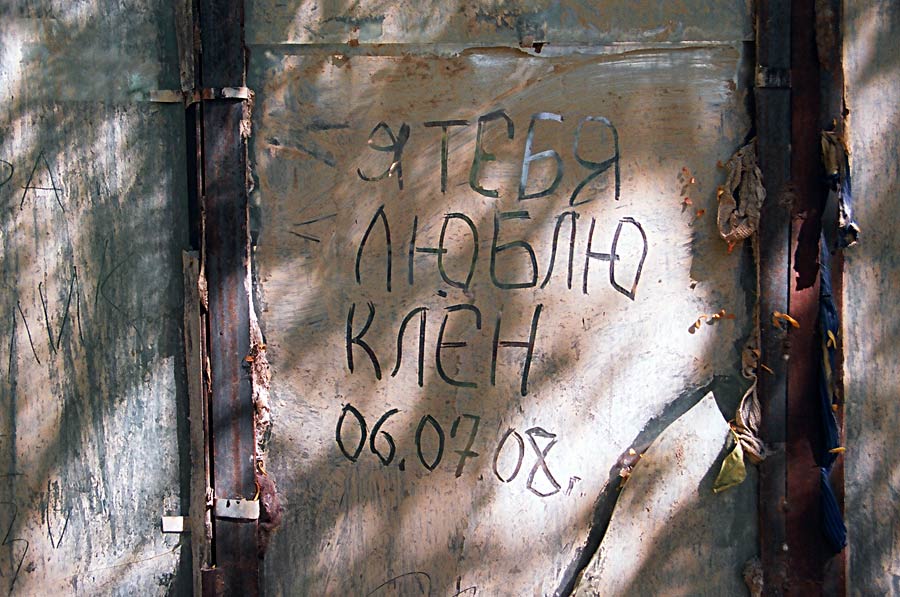 Я ТЕБЯ
ЛЮБЛЮ
КЛЁН
06.07 08г